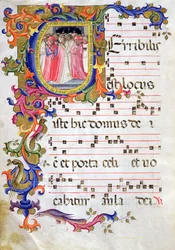 Terribilis
est locus
iste hic domus de
ē et porta celi et uo
cabitur aula dei